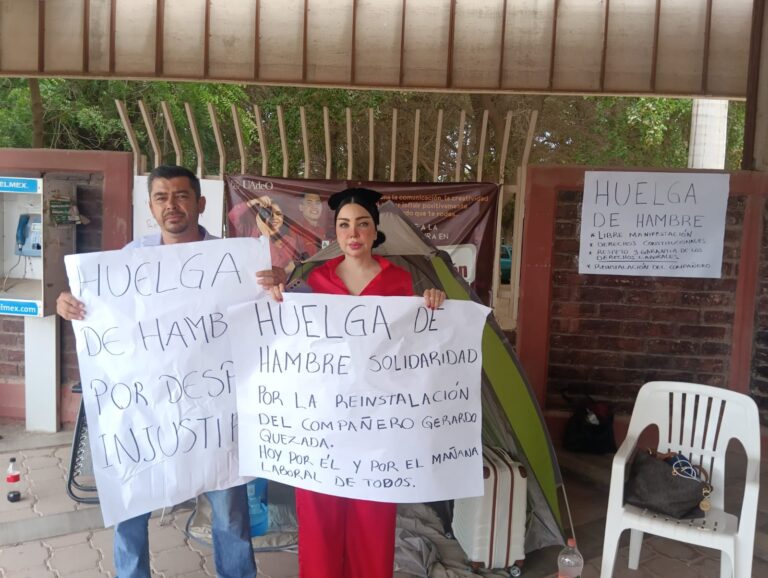 HUELGA
DE HAMB
POR DESP
INJUSTIF
HUELGA DE
HAMBRE SOLIDARIDAD
POR LA REINSTALACIÓN
DEL COMPAÑERO GERARDO
QUEZADA.
HOY POR ÉL Y POR EL MAÑANA
LABORAL DE TODOS.
HUELGA
DE HAMBRE
* LIBRE MANIFESTACIÓN
* DERECHOS CONSTITUCIONALES
* RESPETO Y GARANTIA DE LOS
DERECHOS LABORALES
* REINSTALACIÓN DEL COMPAÑERO
UAdeO
na la comunicación, la creatividad
nfluir positivamente
que te rodea.
LMEX
mex.com